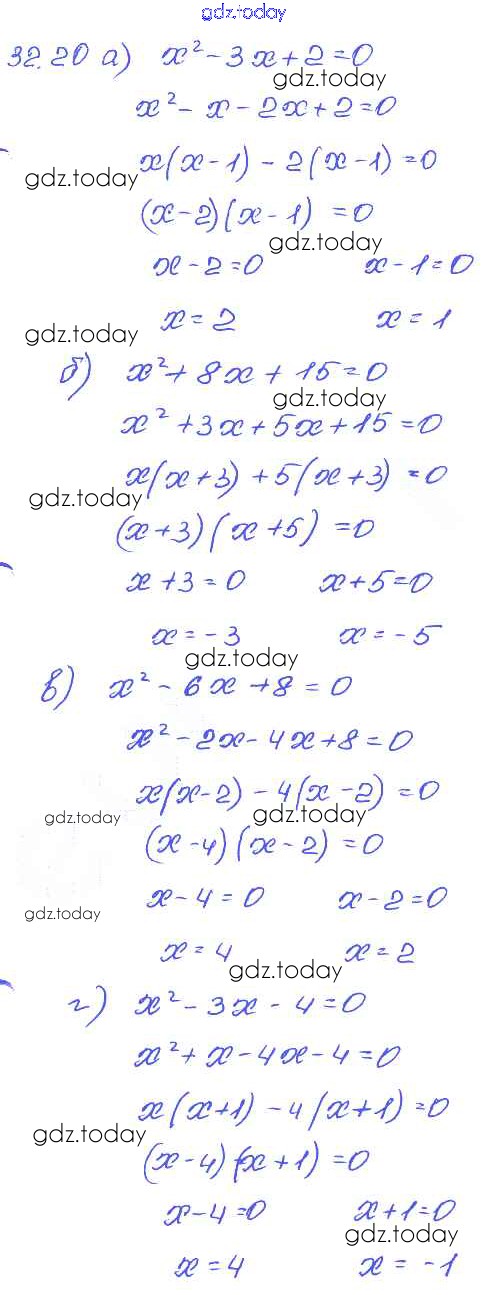 gdz.today
32.20 а) x² - 3x + 2 = 0
gdz.today
x² - x - 2x + 2 = 0
x(x - 1) - 2(x - 1) = 0
gdz.today
(x - 2)(x - 1) = 0
gdz.today
x - 2 = 0 x - 1 = 0
x = 2 x = 1
gdz.today
б) x² + 8x + 15 = 0
gdz.today
x² + 3x + 5x + 15 = 0
x(x + 3) + 5(x + 3) = 0
gdz.today
(x + 3)(x + 5) = 0
x + 3 = 0 x + 5 = 0
x = - 3 x = - 5
gdz.today
в) x² - 6x + 8 = 0
x² - 2x - 4x + 8 = 0
x(x - 2) - 4(x - 2) = 0
gdz.today gdz.today
(x - 4)(x - 2) = 0
x - 4 = 0 x - 2 = 0
gdz.today
x = 4 x = 2
gdz.today
г) x² - 3x - 4 = 0
x² + x - 4x - 4 = 0
x(x + 1) - 4(x + 1) = 0
gdz.today
(x - 4)(x + 1) = 0
x - 4 = 0 x + 1 = 0
gdz.today
x = 4 x = - 1